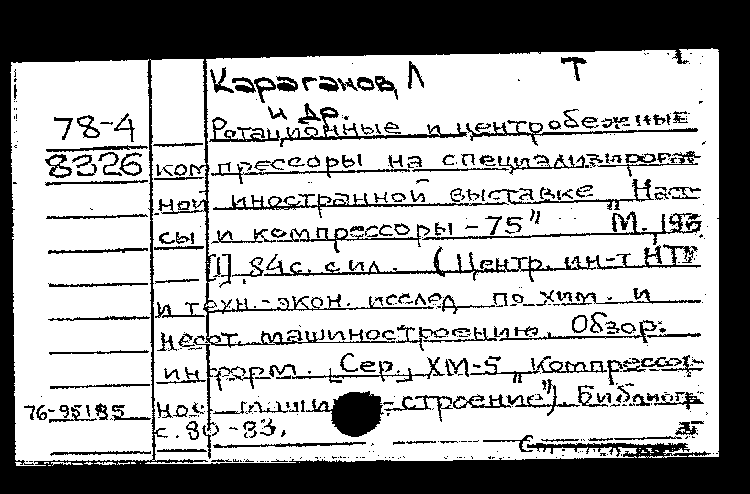 Караганов, Л Т
и др.
78-4 Ротационные и центробежные
8326 компрессоры на специализирован
ной иностранной выставке „Насо-
сы и компрессоры - 75" М. 197
[I], 84 с. с ил. (Центр. ин-т НТИ
и техн.-экон. исслед по хим. и
нефт. машиностроению. Обзор.
информ. Сер., ХМ-5 „Компрессор-
76-95185 ное маши -строение"). Библиогр
с. 80-83.